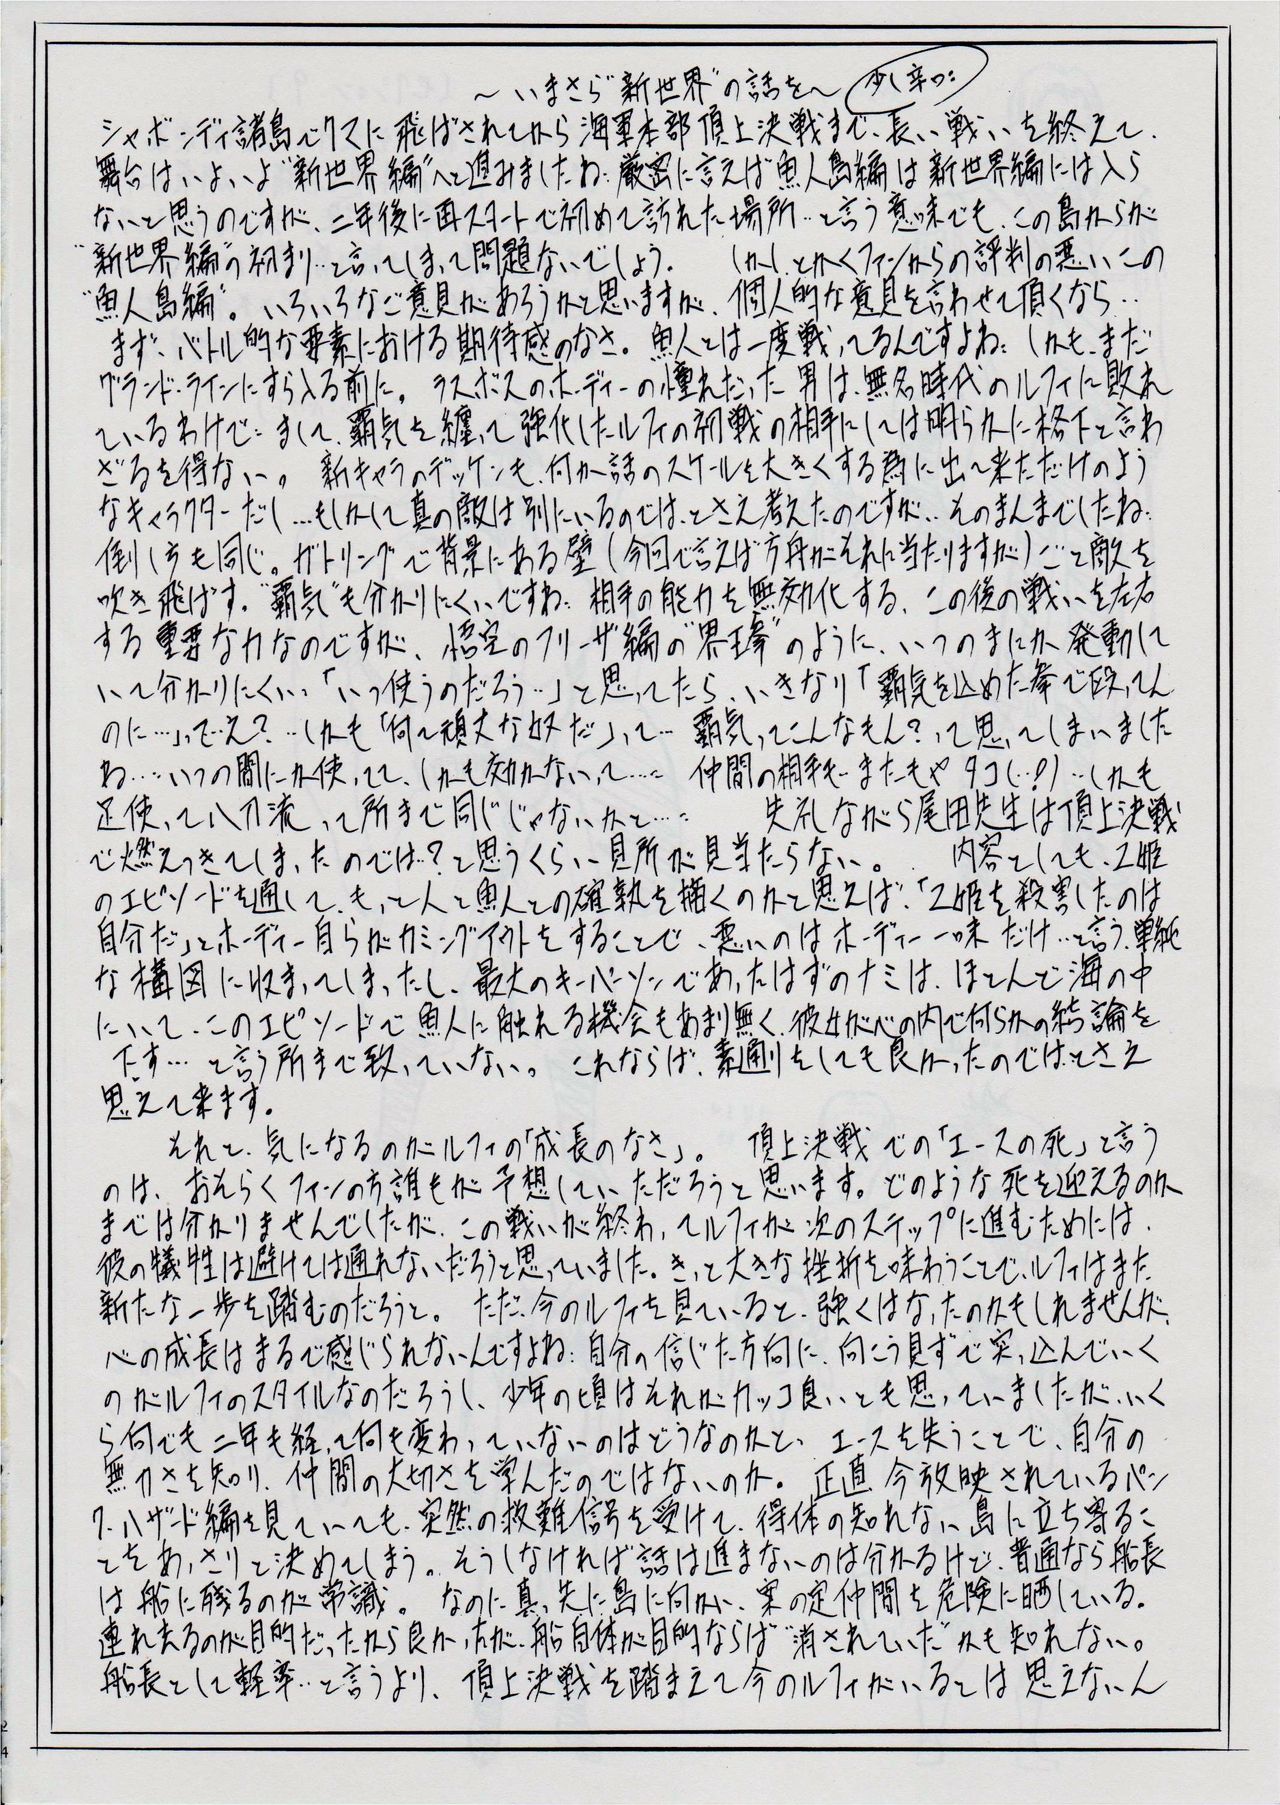 ～いまさら“新世界”の話を～ 少し辛口:
シャボンディ諸島でクマに飛ばされてから海軍本部頂上決戦まで、長い戦いを終えて、
舞台はいよいよ“新世界編”へと進みましたね: 厳密に言えば魚人島編は新世界編には入ら
ないと思うのですが、二年後に再スタートで初めて訪れた場所‥と言う意味でも、この島からが
“新世界編”の初まり‥と言ってしまって問題ないでしょう。 しかし、とかくファンからの評判の悪いこの
“魚人島編”。いろいろなご意見があろうかと思いますが、個人的な意見を言わせて頂くなら‥
まず、バトル的な要素における期待感のなさ。魚人とは一度戦ってるんですよね: しかも、まだ
グランド・ラインにすら入る前に。 ラスボスのホーディーの憧れだった男は、無名時代のルフィに敗れ
ているわけで: まして、覇気を纏って強化したルフィの初戦の相手にしては明らかに格下と言わ
ざるを得ない。 新キャラのデッケンも、何か話のスケールを大きくする為に出て来ただけのよう
なキャラクターだし…もしかして真の敵は別にいるのでは、とさえ考えたのですが‥そのまんまでしたね:
倒し方も同じ。ガトリングで背景にある壁(今回で言えば方舟がそれに当たりますが)ごと敵を
吹き飛ばす。“覇気”も分かりにくいですね: 相手の能力を無効化する、この後の戦いを左右
する重要な力なのですが、悟空のフリーザ編の“界王拳”のように、いつのまにか発動して
いて分かりにくい‥「いつ使うのだろう‥」と思ってたら、いきなり「覇気を込めた拳で殴ってん
のに…」って‥え？‥しかも「何て頑丈な奴だ」って… 覇気ってこんなもん？って思ってしまいました
ね…:いつの間にか使ってて、しかも効かないって…: 仲間の相手も‥またもやタコ(…!)‥しかも
足使って八刀流って所まで同じじゃないかと…: 失礼ながら尾田先生は頂上決戦
で燃えつきてしまったのでは？と思うくらい見所が見当たらない。 内容としても、乙姫
のエピソードを通して、もっと人と魚人との確執を描くのかと思えば、「乙姫を殺害したのは
自分だ」とホーディー自らがカミングアウトをすることで、悪いのはホーディー一味だけ‥と言う、単純
な構図に収まってしまったし、最大のキーパーソンであったはずのナミは、ほとんど海の中
にいて、このエピソードで魚人に触れる機会もあまり無く、彼女が心の内で何らかの結論を
下す…と言う所まで致っていない。 これならば、素通りをしても良かったのでは、とさえ
思えて来ます。
それと、気になるのがルフィの「成長のなさ」。 頂上決戦での「エースの死」と言う
のは、おそらくファンの方誰もが予想していただろうと思います。どのような死を迎えるのか
までは分かりませんでしたが、この戦いが終わってルフィが次のステップに進むためには、
彼の犠牲は避けては通れないだろうと思っていました。きっと大きな挫折を味わうことで、ルフィはまた
新たな一歩を踏むのだろうと。 ただ、今のルフィを見ていると、強くはなったのかもしれませんが、
心の成長はまるで感じられないんですよね: 自分の信じた方向に、向こう見ずで突っ込んでいく
のがルフィのスタイルなのだろうし、少年の頃はそれがカッコ良いとも思っていましたが、いく
ら何でも二年も経って何も変わっていないのはどうなのかと、 エースを失うことで、自分の
無力さを知り、仲間の大切さを学んだのではないのか。 正直、今放映されているパン
ク・ハザード編を見ていても、突然の救難信号を受けて、得体の知れない島に立ち寄るこ
とをあっさりと決めてしまう。そうしなければ話は進まないのは分かるけど、普通なら船長
は船に残るのが常識。 なのに真っ先に島に向かい、案の定仲間を危険に晒している。
連れ去るのが目的だったから良かったが、船自体が目的ならば“消されていた”かも知れない。
船長として軽率‥と言うより、頂上決戦を踏まえて今のルフィがいるとは思えないん
24